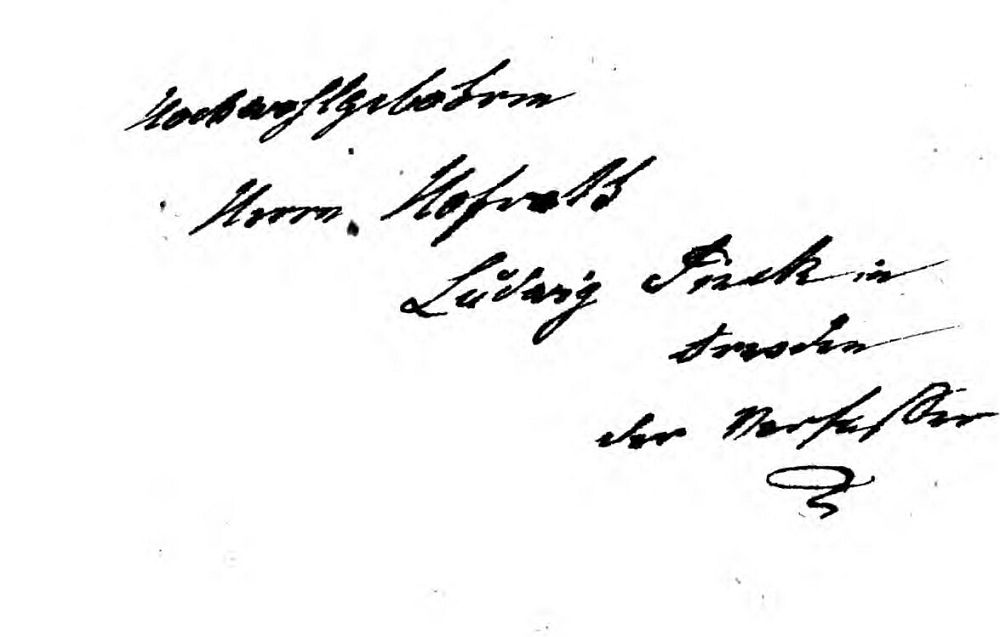 Hochwohlgebohrn
Herrn Hofrath
Ludwig Tieck in
Dresden
der Verfasser